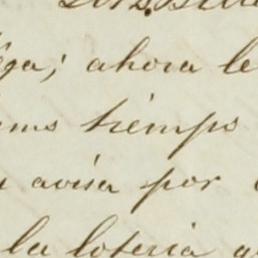 ega; ahora le
ems tiempo
avisa por
la loteria